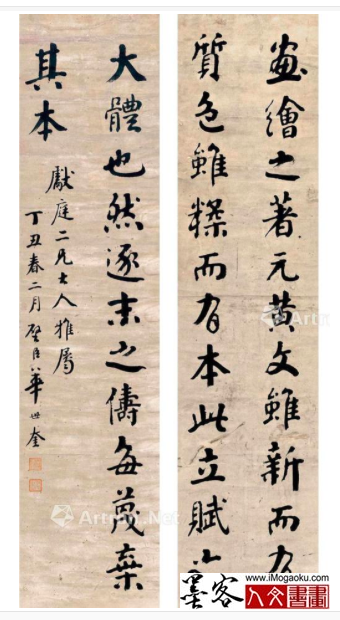 畫繪之著元黃文雖新而有
質色雖糅而有本此立賦之
大體也然逐末之儔每蔑棄
其本
獻庭二兄大人雅屬
丁丑春二月璧臣華世奎
Artron.Net
墨客
www.iMogaoku.com
人文書畫